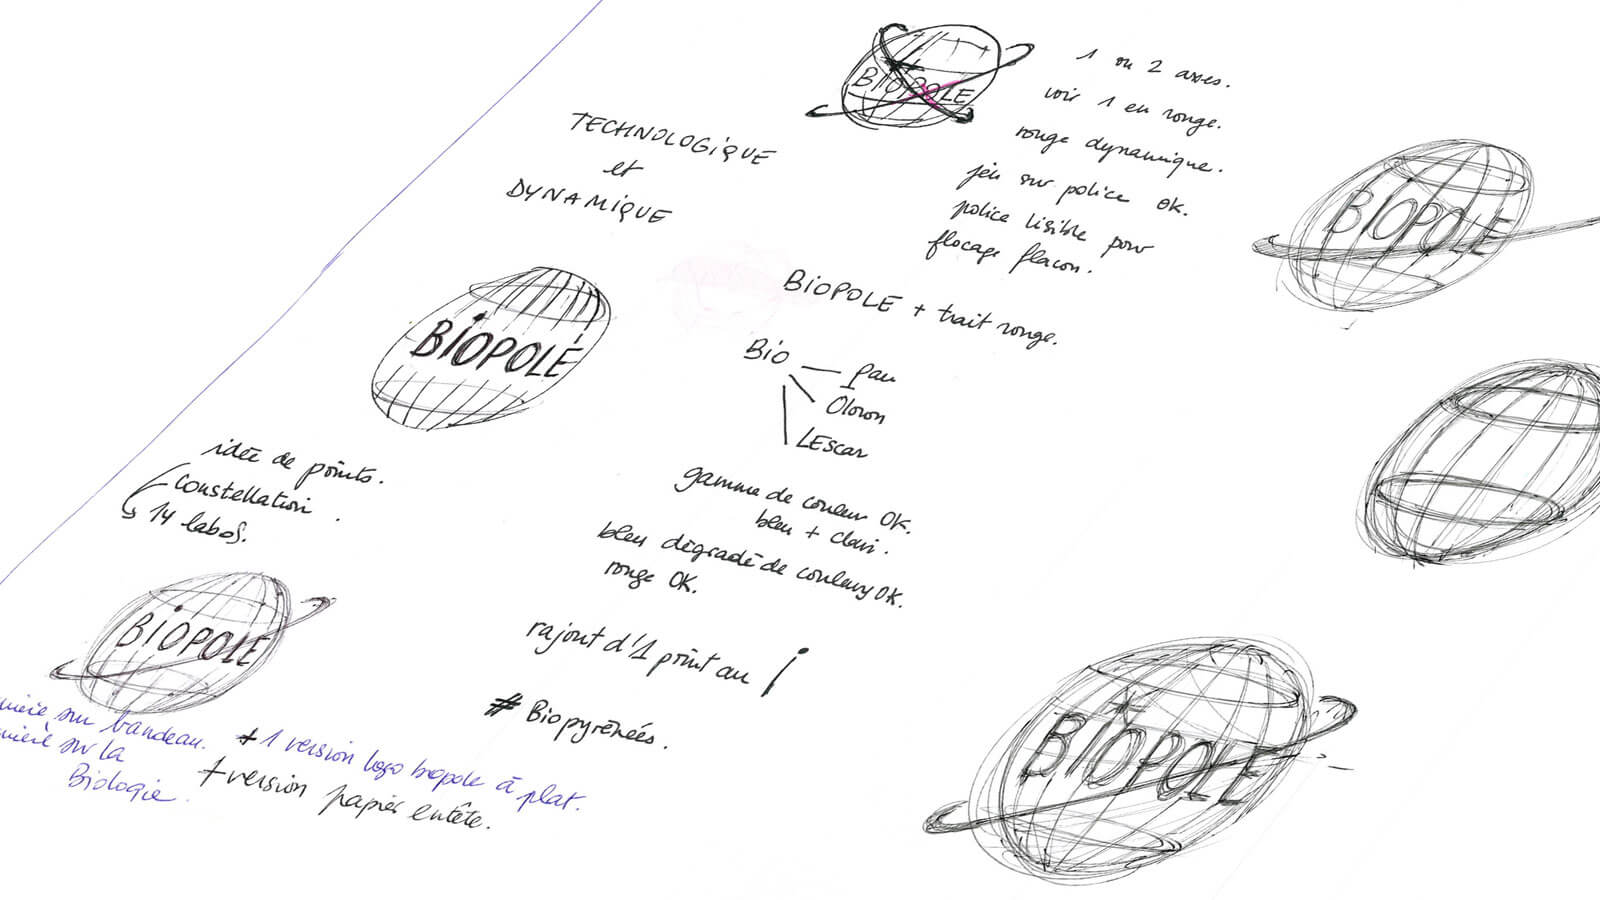 BIOPOLE
1 ou 2 axes.
voir 1 en rouge.
rouge dynamique.
jeu sur police OK.
police lisible pour
flocage flacon.
TECHNOLOGIQUE
et
DYNAMIQUE
BIOPOLE
BIOPOLE + trait rouge.
BIOPOLE
Bio
Pau
Oloron
LEscar
idée de points.
constellation.
14 labos.
gamme de couleur OK.
bleu + clair.
bleu dégradé de couleurs OK.
rouge OK.
BIOPOLE
rajout d'1 point au i
# Biopyrénées.
BIOPOLE
sur bandeau. + 1 version logo biopole à plat.
sur la
Biologie.
+ version papier entête.